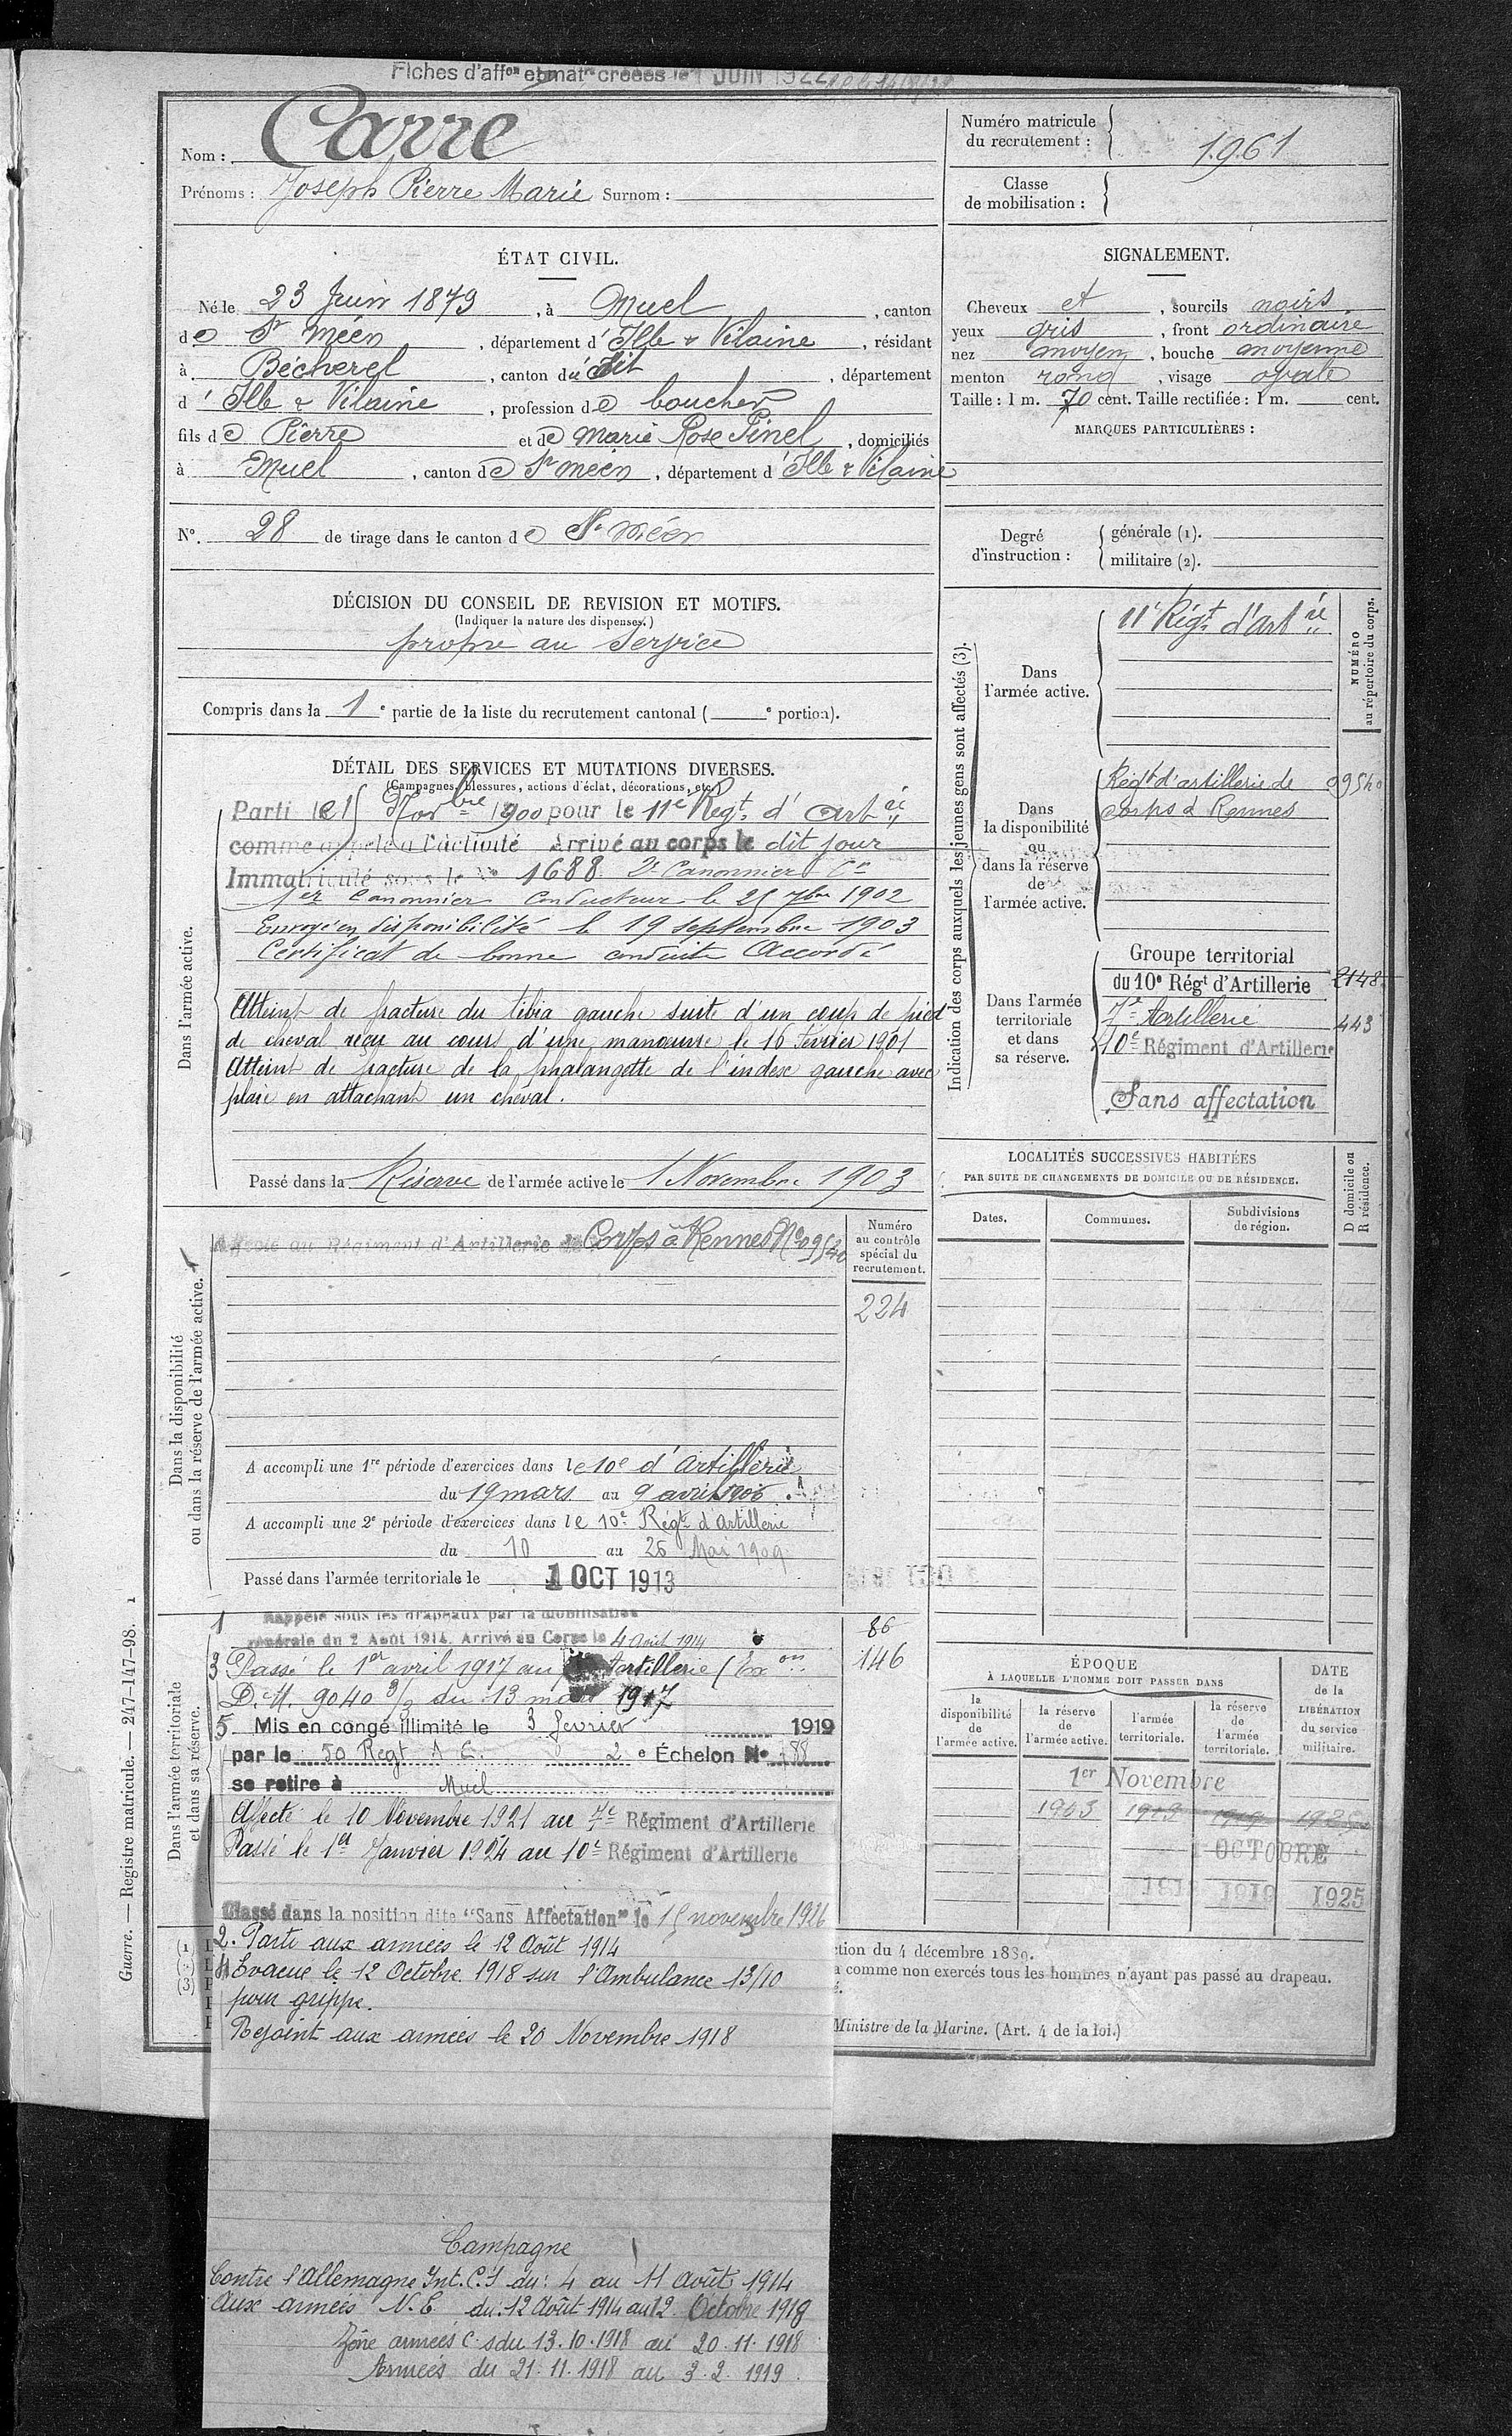 Fiches d'affon et mat créées le 1 JUIN 1922
Nom : Carre
Prénoms : Joseph Pierre Marie Surnom :
Numéro matricule du recrutement : 1961
Classe de mobilisation :
ÉTAT CIVIL.
Né le 23 Juin 1879, à Muel, canton
de St Méen, département d'Ille & Vilaine, résidant
à Bécherel, canton du dit, département
d'Ille & Vilaine, profession de boucher
fils de Pierre et de Marie Rose Pinel, domiciliés
à Muel, canton de St Méen, département d'Ille & Vilaine
N°. 28 de tirage dans le canton de St Méen
SIGNALEMENT.
Cheveux et, sourcils noirs
yeux gris, front ordinaire
nez moyen, bouche moyenne
menton rond, visage ovale
Taille : 1 m. 70 cent. Taille rectifiée : 1 m. cent.
MARQUES PARTICULIÈRES :
Degré d'instruction : générale (1).
militaire (2).
DÉCISION DU CONSEIL DE REVISION ET MOTIFS.
(Indiquer la nature des dispenses.)
propre au service
Compris dans la 1e partie de la liste du recrutement cantonal ( e portion).
DÉTAIL DES SERVICES ET MUTATIONS DIVERSES.
(Campagnes, blessures, actions d'éclat, décorations, etc.)
Dans l'armée active.
Parti le 15 Novbre 1900 pour le 11e Regt. d'Artie
comme appelé à l'activité Arrivé au corps le dit jour
Immatriculé sous le No 1688. 2e Canonnier Cr
1er Canonnier Conducteur le 25 7bre 1902
Envoyé en disponibilité le 19 septembre 1903
Certificat de bonne conduite Accordé
Atteint de fracture du tibia gauche suite d'un coup de pied
de cheval reçu au cours d'une manœuvre le 16 février 1901
Atteint de fracture de la phalangette de l'index gauche avec
plaie en attachant un cheval.
Passé dans la Réserve de l'armée active le 1 Novembre 1903
Indication des corps auxquels les jeunes gens sont affectés (3).
NUMÉRO au répertoire du corps.
Dans l'armée active.
11e Régt d'Artie
Dans la disponibilité ou dans la réserve de l'armée active.
Régt d'artillerie de 09540
corps à Rennes
Dans l'armée territoriale et dans sa réserve.
Groupe territorial
du 10e Régt d'Artillerie 2148
7e Artillerie 443
10e Régiment d'Artillerie
Sans affectation
LOCALITÉS SUCCESSIVES HABITÉES
PAR SUITE DE CHANGEMENTS DE DOMICILE OU DE RÉSIDENCE.
Dates. Communes. Subdivisions de région. D domicile ou R résidence.
Dans la disponibilité ou dans la réserve de l'armée active.
Affecté au Régiment d'Artillerie de Corps à Rennes No 09540
Numéro au contrôle spécial du recrutement.
224
A accompli une 1re période d'exercices dans le 10e d'Artillerie
du 19 mars au 9 avril 1906.
A accompli une 2e période d'exercices dans le 10e Régt d'Artillerie
du 10 au 26 Mai 1909
Passé dans l'armée territoriale le 1 OCT 1913
Dans l'armée territoriale et dans sa réserve.
1 Rappelé sous les drapeaux par la mobilisation
générale du 2 Août 1914. Arrivé au Corps le 4 Août 1914
86
146
3 Passé le 1er avril 1917 au Artillerie (Exon
D.M. 9040 3/3 du 13 mars 1917
5. Mis en congé illimité le 3 février 1919
par le 50 Regt A C. 2e Échelon No 788
se retire à Muel
Affecté le 10 Novembre 1921 au 7e Régiment d'Artillerie
Passé le 1er Janvier 1924 au 10e Régiment d'Artillerie
Classé dans la position dite "Sans Affectation" le 15 novembre 1926
2. Parti aux armées le 12 Août 1914
4 Evacué le 12 Octobre 1918 sur l'Ambulance 13/10
pour grippe.
Rejoint aux armées le 20 Novembre 1918
ÉPOQUE
À LAQUELLE L'HOMME DOIT PASSER DANS
la disponibilité de l'armée active. la réserve de l'armée active. l'armée territoriale. la réserve de l'armée territoriale.
DATE de la LIBÉRATION du service militaire.
1er Novembre
1903 1913 1919 1925
1 OCTOBRE
1913 1919 1925
(1)
(2)
(3)
ction du 4 décembre 1889.
a comme non exercés tous les hommes n'ayant pas passé au drapeau.
Ministre de la Marine. (Art. 4 de la loi.)
Guerre. — Registre matricule. — 247-147-98. 1
Campagne
Contre l'Allemagne Int. C.S du: 4 au 11 Août 1914
Aux armées N.E. du: 12 Août 1914 au 12 Octobre 1918
Zone armées C.S du 13.10.1918 au 20.11.1918
Armées du 21.11.1918 au 3.2.1919.